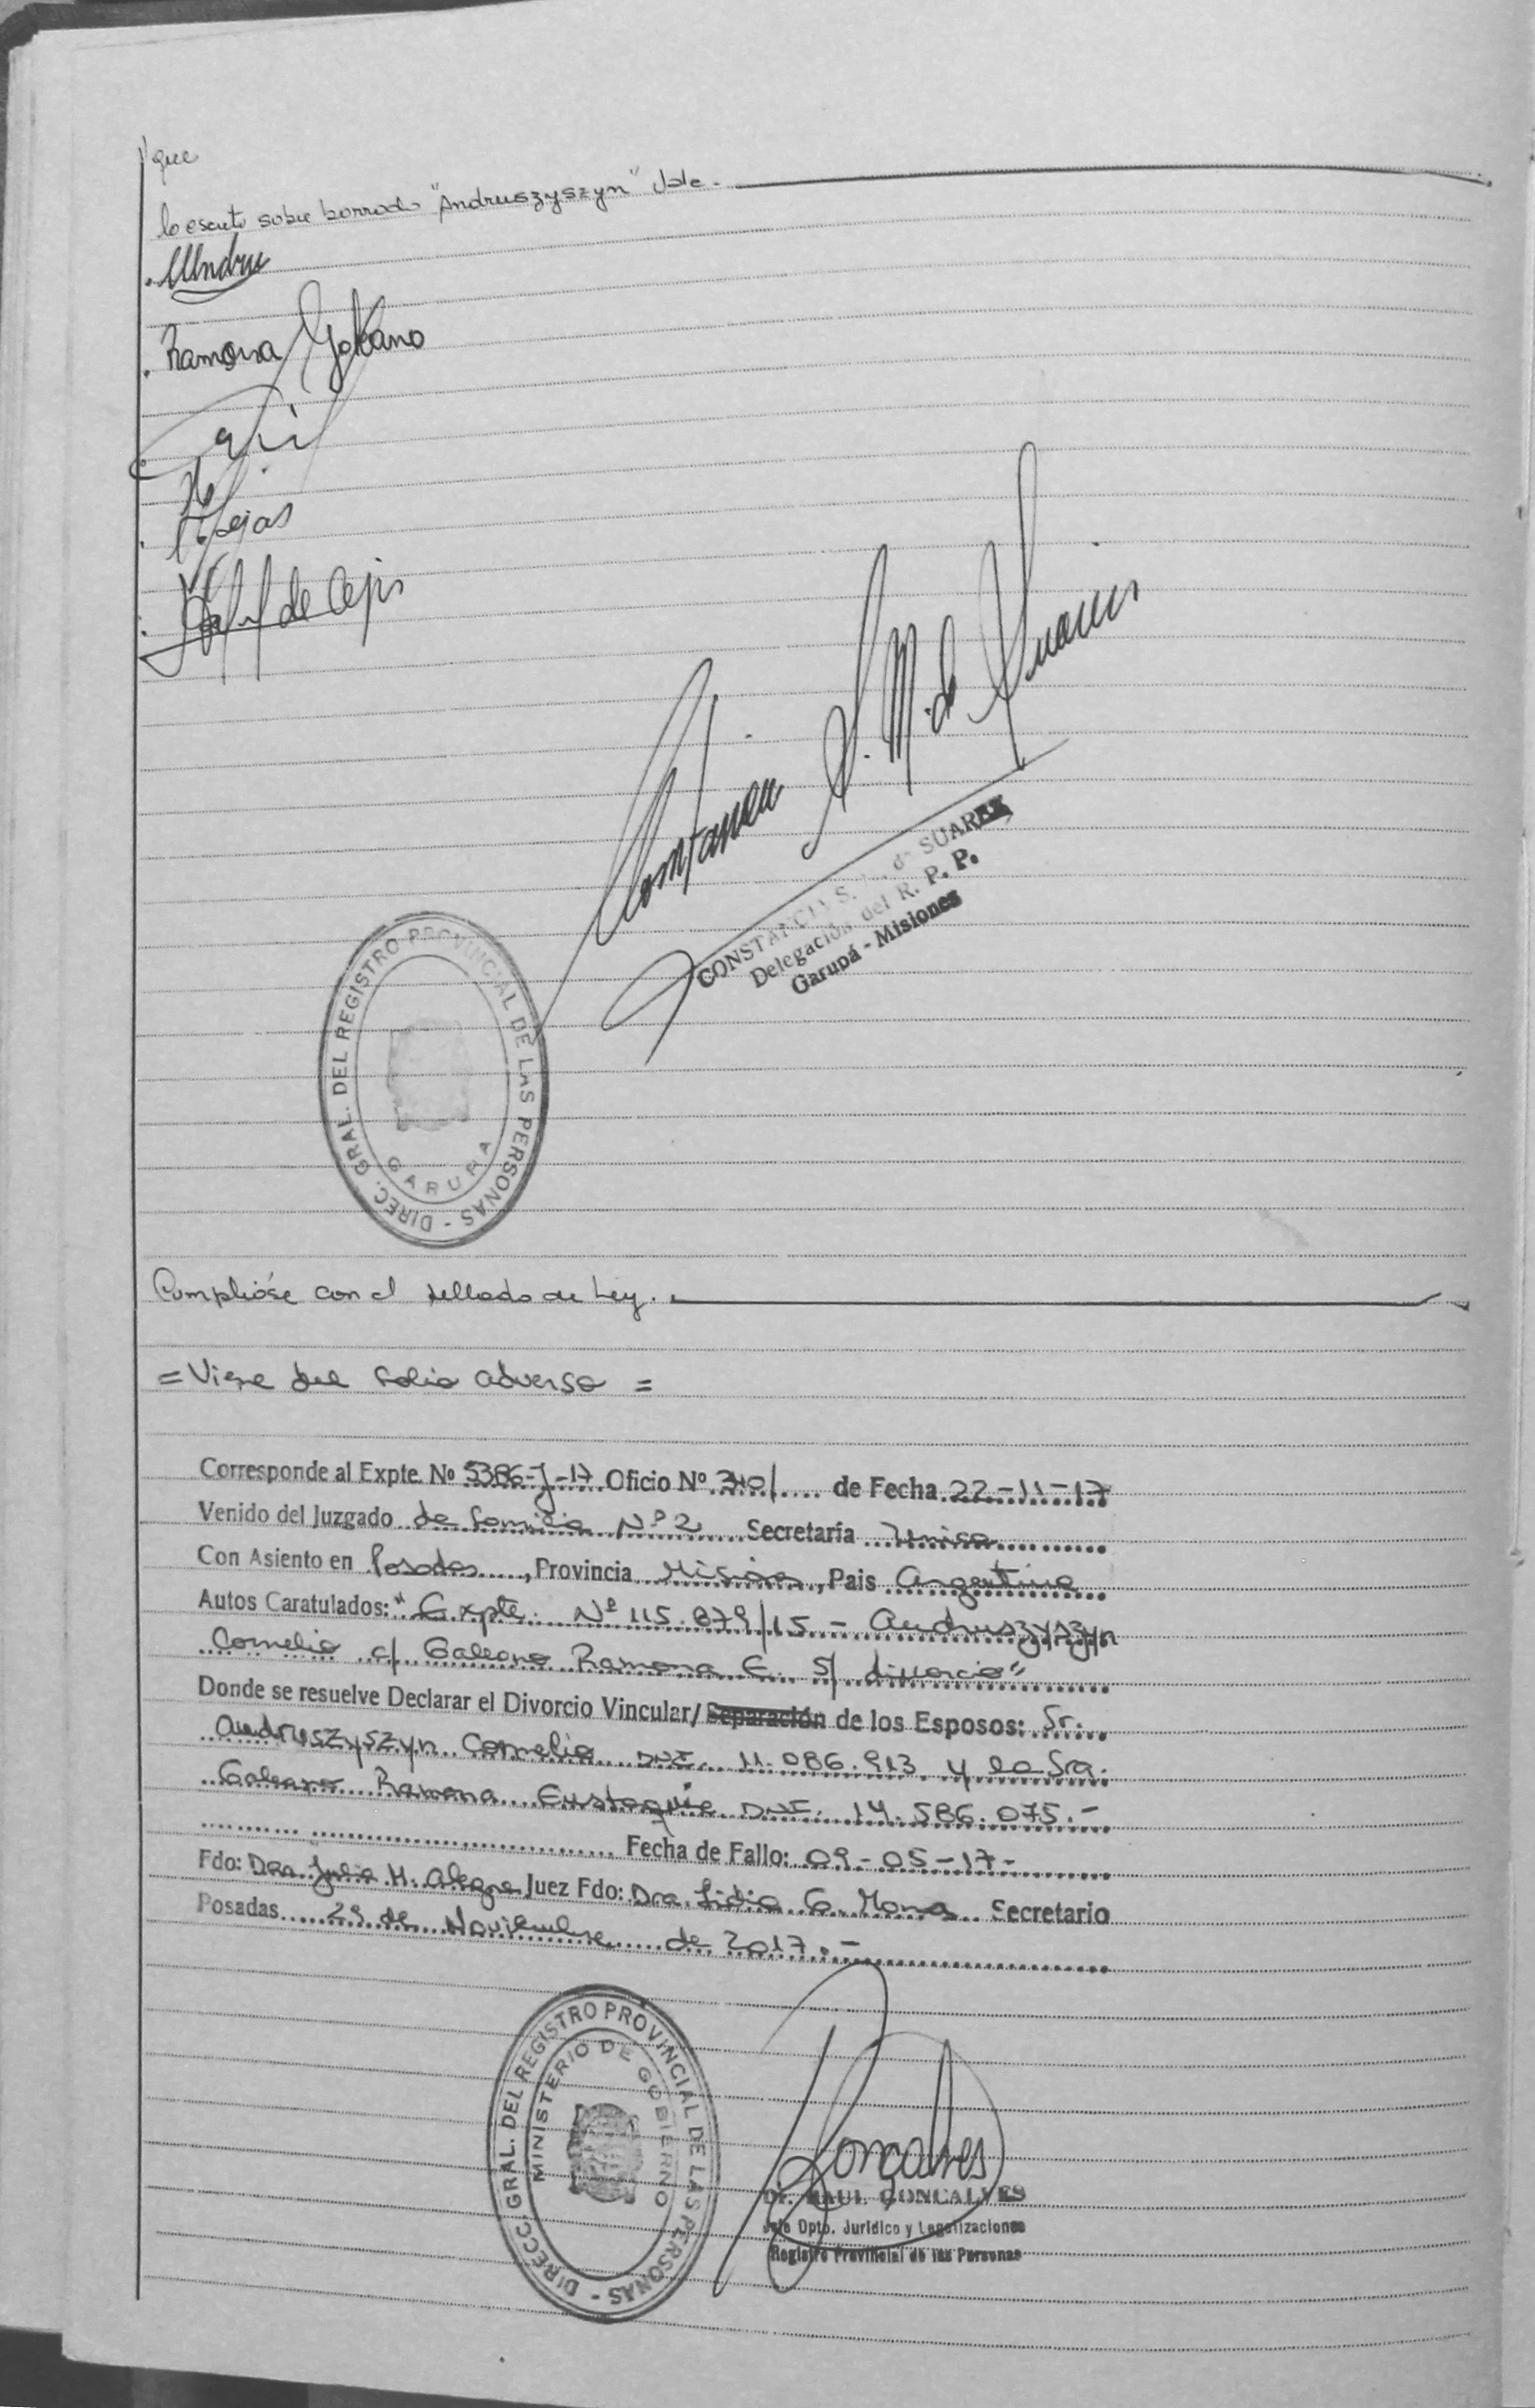 que
lo escrito sobre borrado "Andruszyszyn" Vale.-
Andru
Ramona Galeano
Rojas
de
Constancia S. M. de Suarez
CONSTANCIA S. M. de SUAREZ
Delegación del R. P. P.
Garupá - Misiones
DIREC. GRAL. DEL REGISTRO PROVINCIAL DE LAS PERSONAS -
GARUPA
Cumplióse con el sellado de Ley.
= Viene del folio adverso =
Corresponde al Expte. No 5386-J-17 Oficio Nº 340/ de Fecha 22-11-17
Venido del Juzgado de familia Nº 2 Secretaría Unica
Con Asiento en Posadas, Provincia Misiones, Pais Argentina
Autos Caratulados: "Expte. Nº 115.879/15 - Andruszyszyn
Cornelio c/ Galeano Ramona E. S/ divorcio"
Donde se resuelve Declarar el Divorcio Vincular/ Separación de los Esposos: Sr.
Andruszyszyn Cornelio DNI. 11.086.913 y la Sra.
Galeano Ramona Eustaquia DNI. 14.586.075.-
Fecha de Fallo: 09-05-17-
Fdo: Dra. Julia H. Alegre Juez Fdo: Dra. Lidia G. Mona Secretario
Posadas 29 de Noviembre de 2017.-
DIRECC. GRAL. DEL REGISTRO PROVINCIAL DE LAS PERSONAS -
MINISTERIO DE GOBIERNO
Goncalves
Dr. RAUL GONCALVES
Jefe Dpto. Jurídico y Legalizaciones
Registro Provincial de las Personas